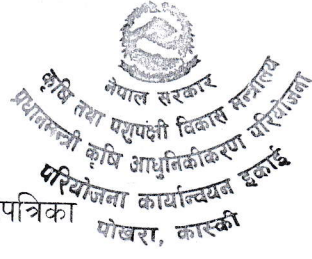 नेपाल सरकार
कृषि तथा पशुपंक्षी विकास मन्त्रालय
प्रधानमन्त्री कृषि आधुनिकीकरण परियोजना
परियोजना कार्यान्वयन इकाई
पोखरा, कास्की
पत्रिका